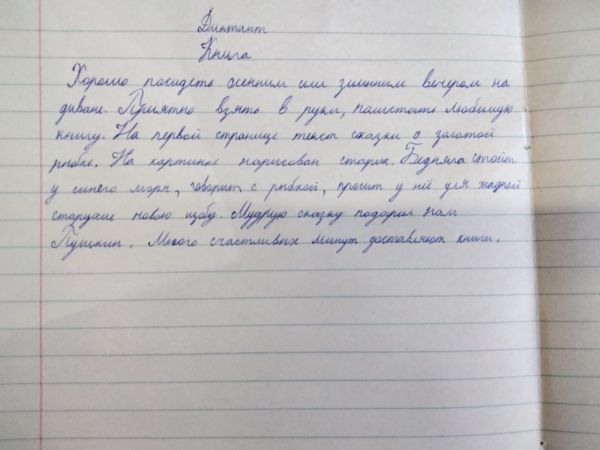 Диктант
Книга
Хорошо посидеть осенним или зимним вечером на
диване. Приятно взять в руки, полистать любимую
книгу. На первой странице текст сказки о золотой
рыбке. На картинке нарисован старик. Бедняга стоит
у синего моря, говорит с рыбкой, просит у неё для жадной
старухи новую избу. Мудрую сказку подарил нам
Пушкин. Много счастливых минут доставляют книги.